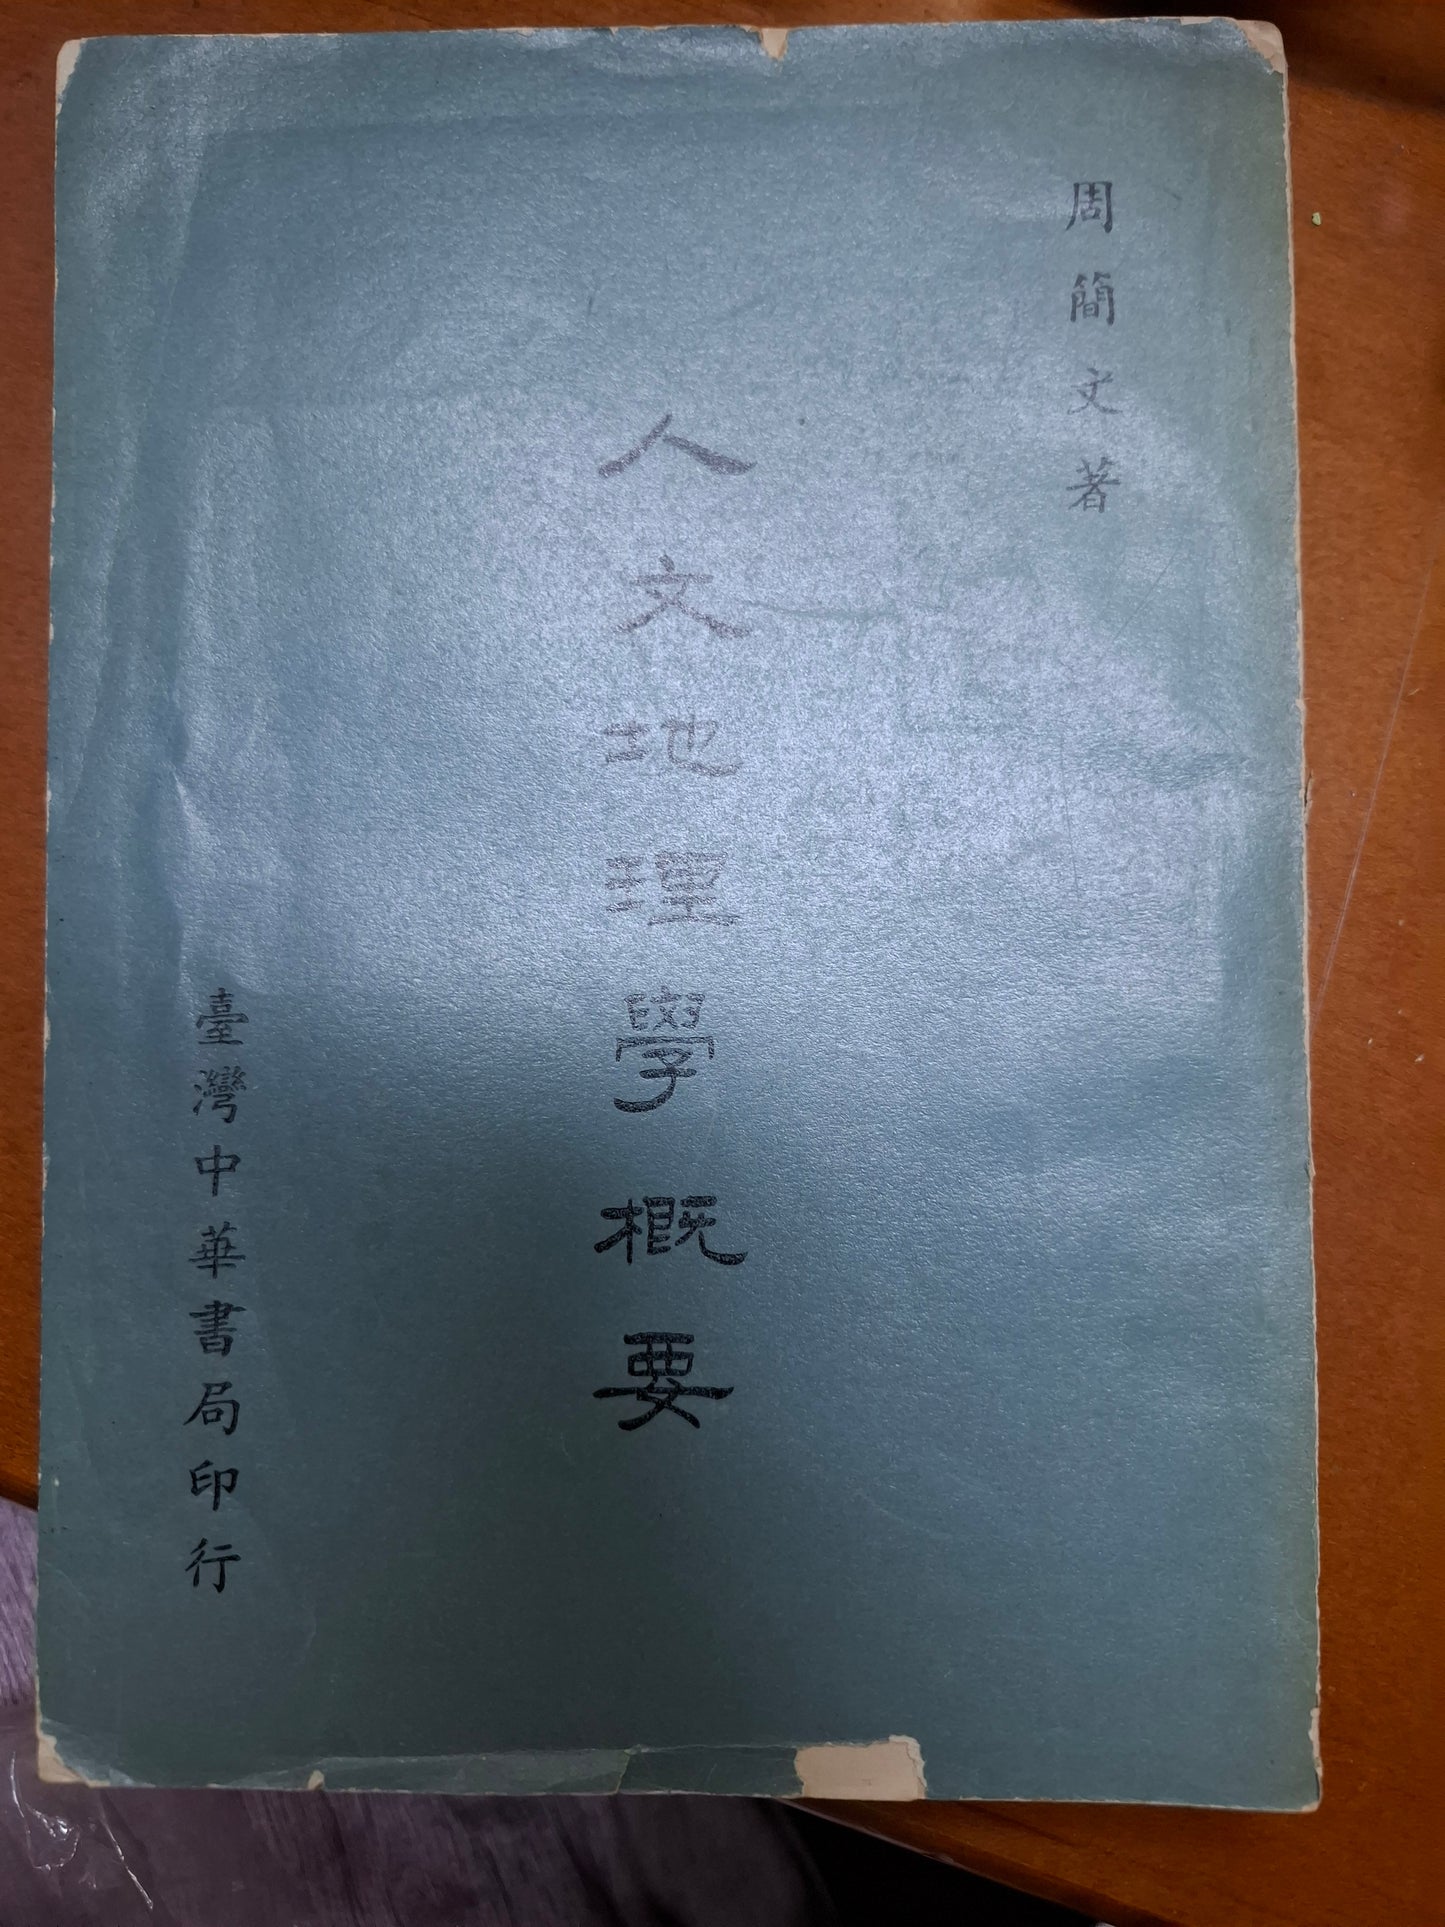 周簡文著
人文地理學概要
臺灣中華書局印行